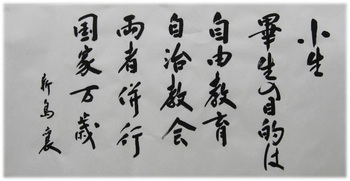 小生
畢生の目的は
自由教育
自治教会
両者併行
国家万歳
新島襄